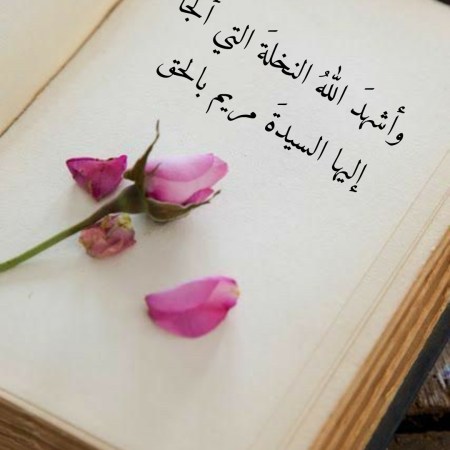 وأشهدَ اللهُ النخلةَ التي ألجأ
إليها السيدةَ مريم بالحق